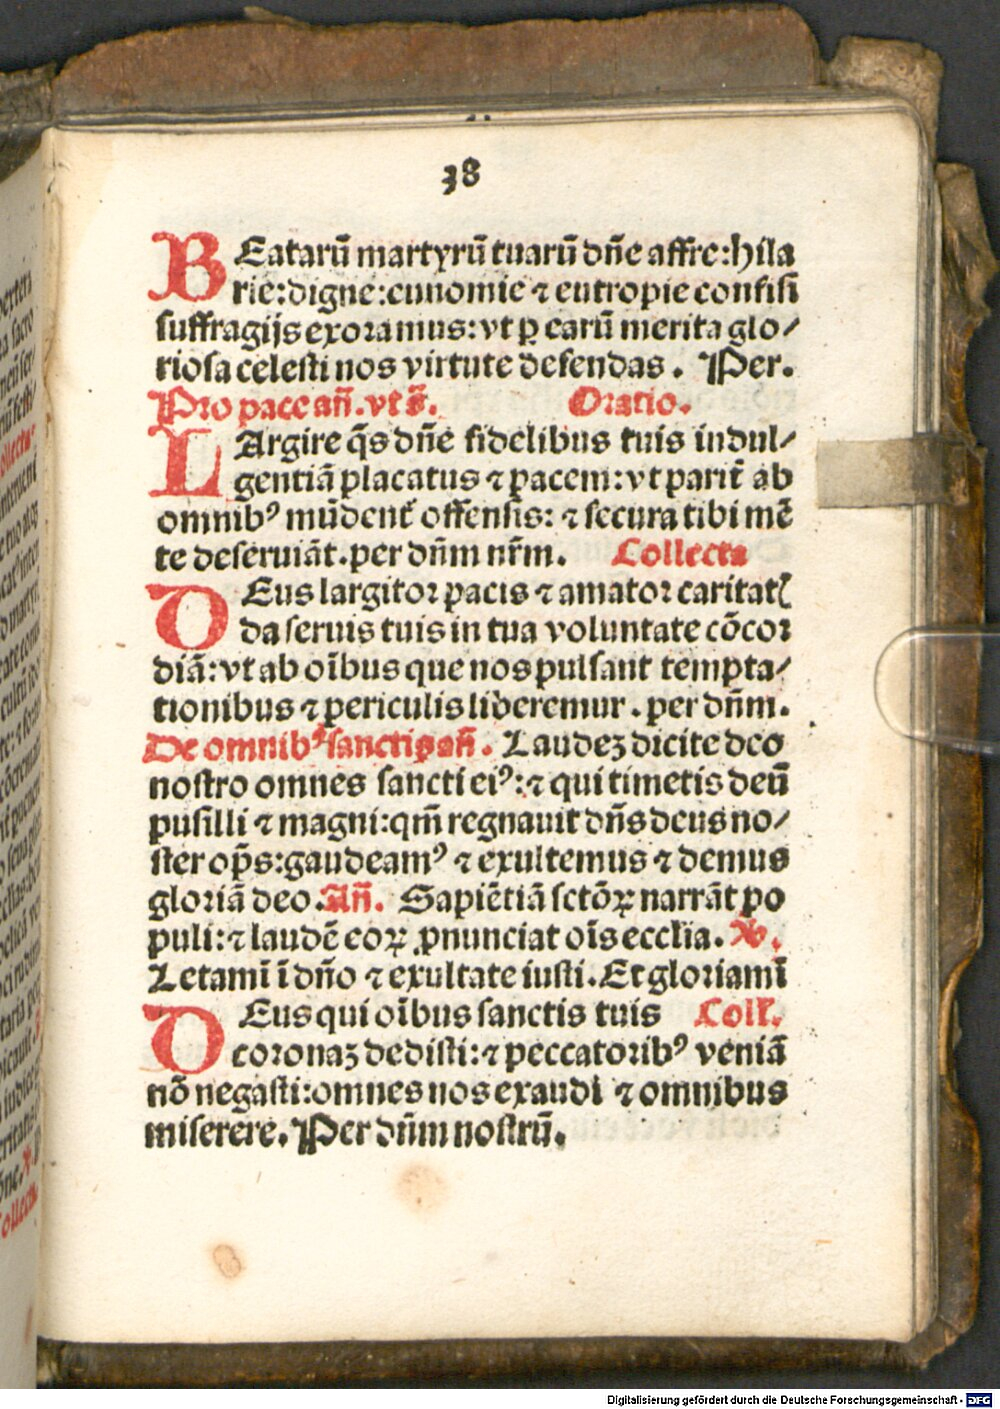 38
BEatarū martyrū tuarū dñe affre:hila
rie:digne:eunomie ⁊ eutropie confisi
suffragijs exoramus:vt ꝑ earū merita glo/
riosa celesti nos virtute defendas. Per.
Pro pace añ. vt s̄. Oratio.
LArgire q̄s dñe fidelibus tuis indul/
gentiā placatus ⁊ pacem:vt parit̄ ab
omnibꝰ mūdent̄ offensis: ⁊ secura tibi mē
te deseruiāt.per dñm nr̄m. Collecta
DEus largitor pacis ⁊ amator caritatꝭ
da seruis tuis in tua voluntate cōcor
diā:vt ab oībus que nos pulsant tempta/
tionibus ⁊ periculis liberemur.per dñm.
De omnibꝰ sanctis añ. Laudeʒ dicite deo
nostro omnes sancti eiꝰ:⁊ qui timetis deū
pusilli ⁊ magni:qm̄ regnauit dñs deus no/
ster op̄s:gaudeamꝰ ⁊ exultemus ⁊ demus
gloriā deo. Añ. Sapiētiā sctōꝝ narrāt po
puli:⁊ laudē eoꝝ ꝓnunciat oīs ecclīa. ℣.
Letamī ī dño ⁊ exultate iusti.Et gloriamī
DEus qui oībus sanctis tuis Coll̄.
coronaʒ dedisti:⁊ peccatoribꝰ veniā
nō negasti:omnes nos exaudi ⁊ omnibus
miserere. Per dñm nostrū.
Digitalisierung gefördert durch die Deutsche Forschungsgemeinschaft - DFG